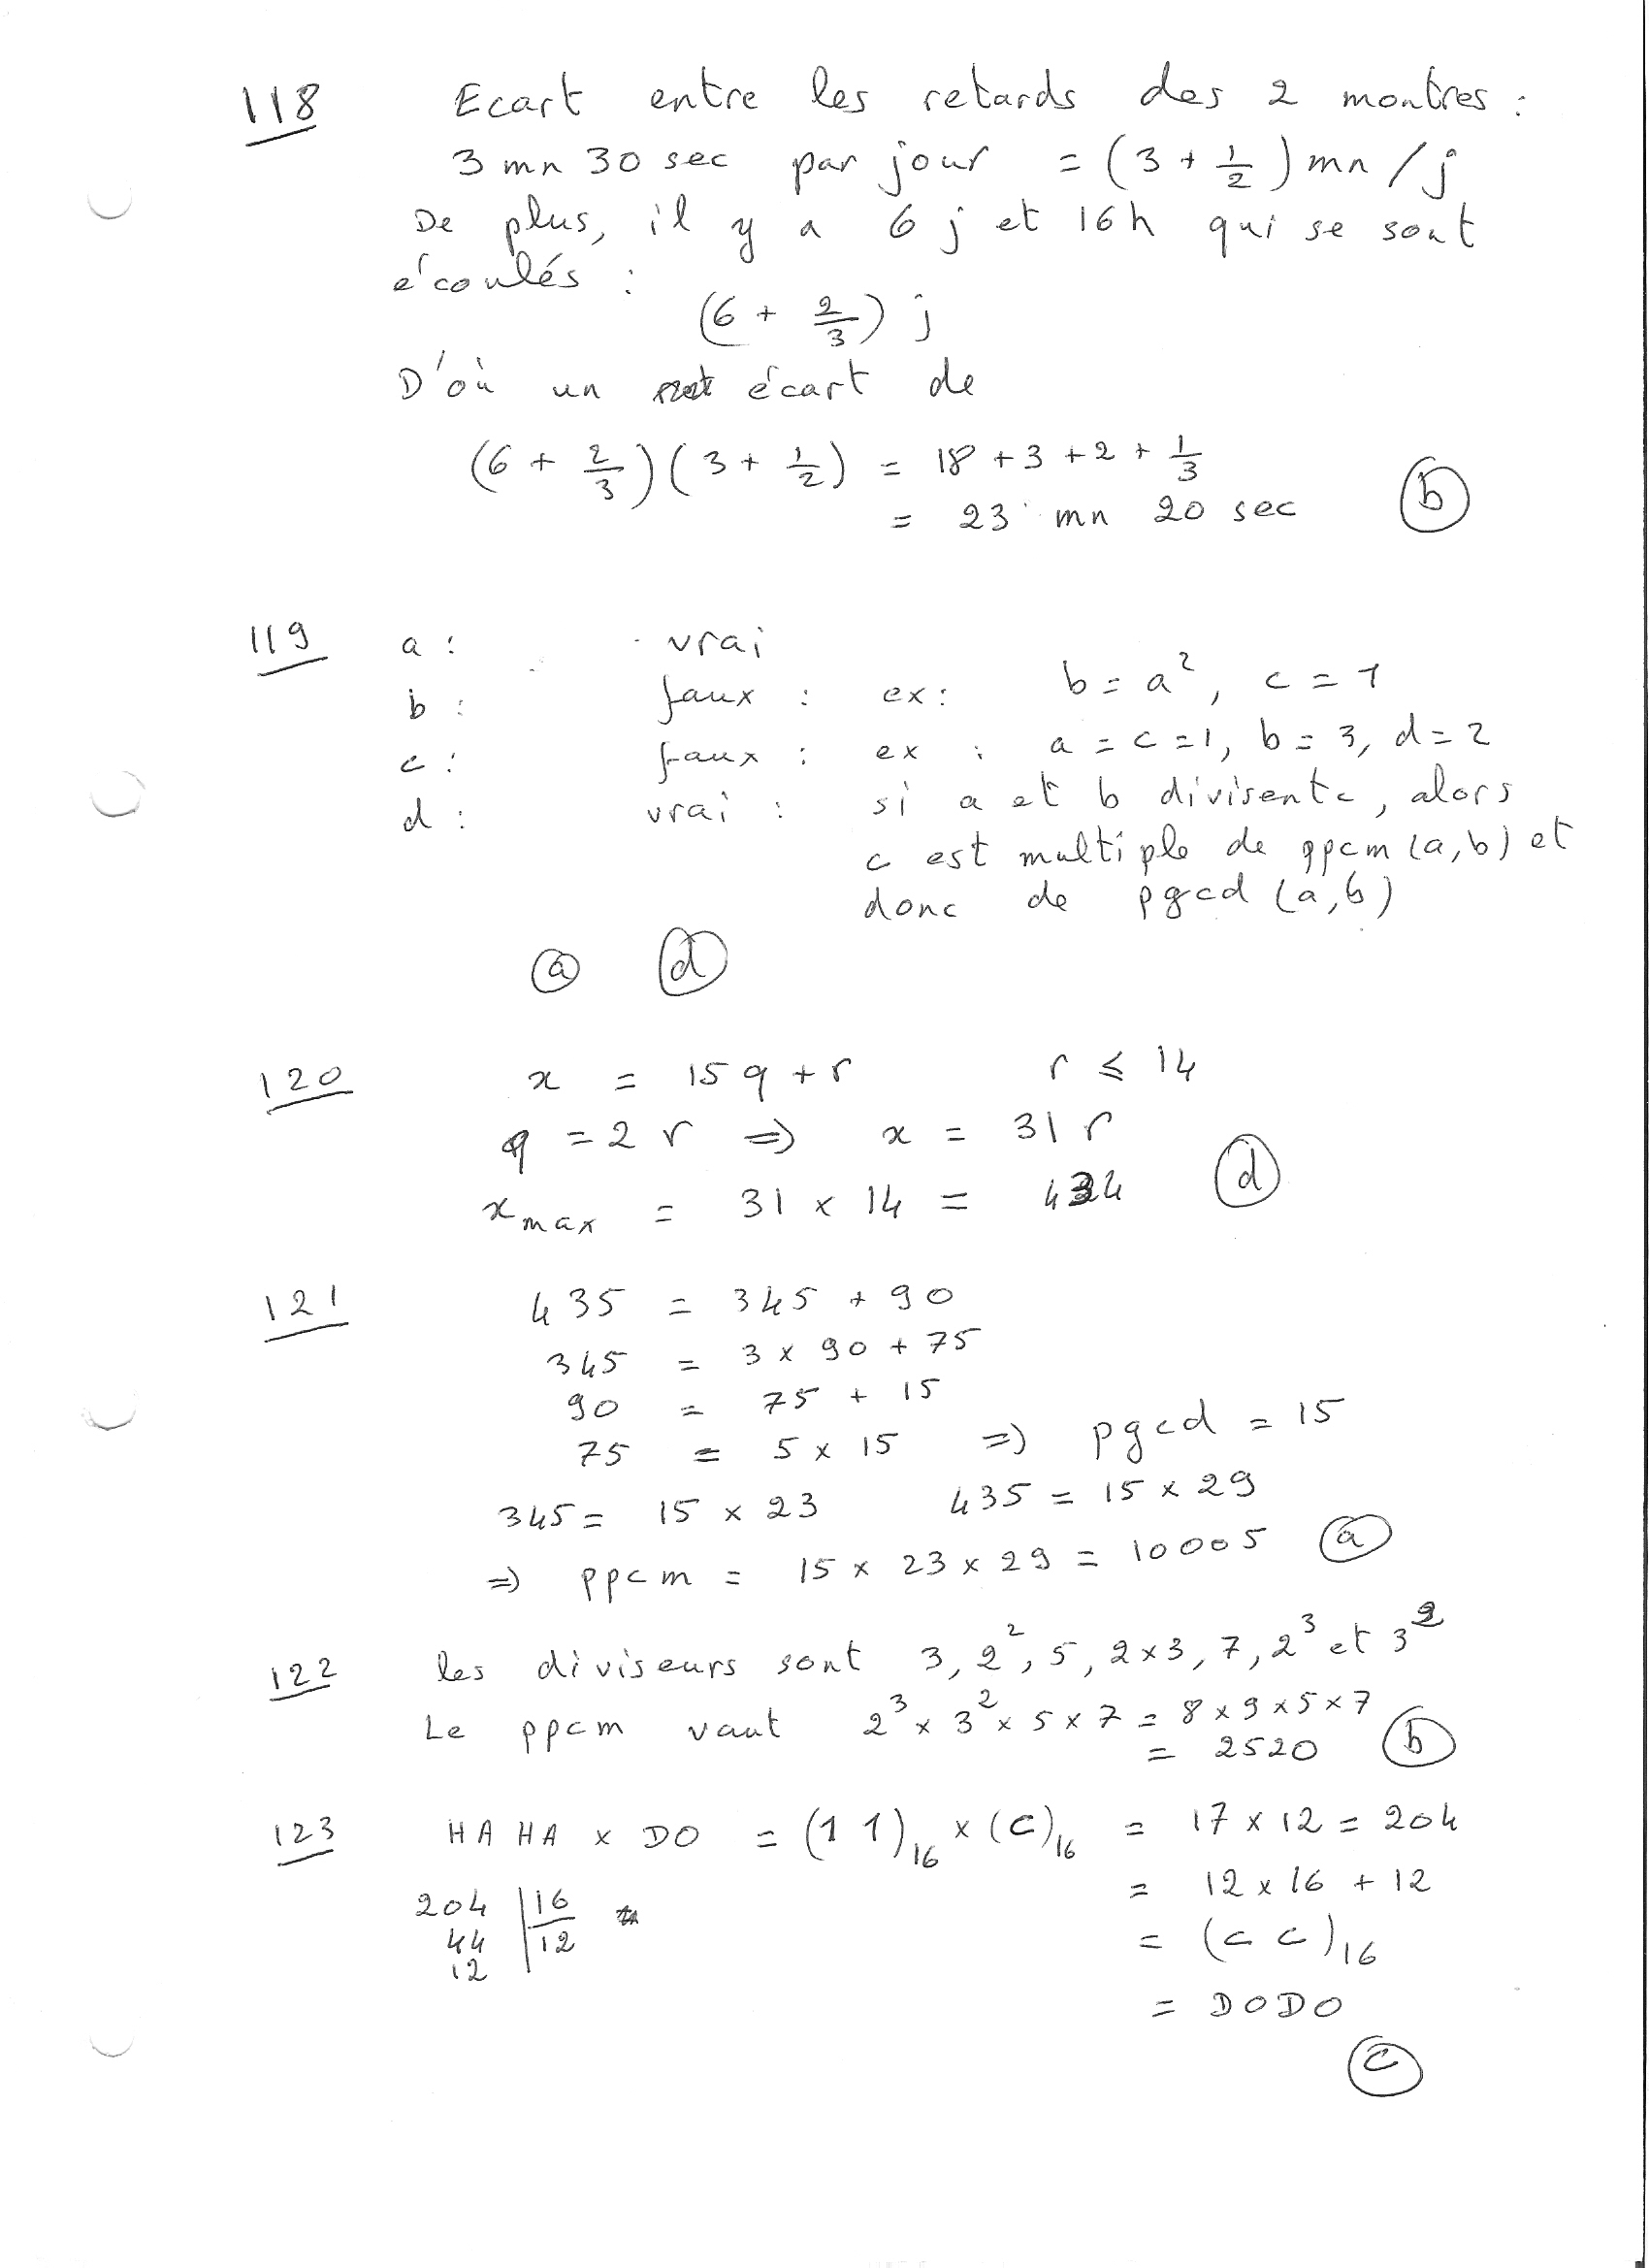 118 Ecart entre les retards des 2 montres :
3 mn 30 sec par jour = (3 + 1/2) mn / j
De plus, il y a 6 j et 16 h qui se sont
écoulés :
(6 + 2/3) j
D'où un écart de
(6 + 2/3)(3 + 1/2) = 18 + 3 + 2 + 1/3
= 23 mn 20 sec (b)
119 a : vrai
b : faux : ex : b = a², c = 1
c : faux : ex : a = c = 1, b = 3, d = 2
d : vrai : si a et b divisent c, alors
c est multiple de ppcm (a, b) et
donc de pgcd (a, b)
(a) (d)
120 x = 15 q + r r ⩽ 14
q = 2 r => x = 31 r
x max = 31 x 14 = 434 (d)
121 435 = 345 + 90
345 = 3 x 90 + 75
90 = 75 + 15
75 = 5 x 15 => pgcd = 15
345 = 15 x 23 435 = 15 x 29
=> ppcm = 15 x 23 x 29 = 10005 (a)
122 les diviseurs sont 3, 2², 5, 2 x 3, 7, 2³ et 3²
Le ppcm vaut 2³ x 3² x 5 x 7 = 8 x 9 x 5 x 7
= 2520 (b)
123 HA HA x DO = (1 1)₁₆ x (C)₁₆ = 17 x 12 = 204
= 12 x 16 + 12
204 | 16
44 | 12
12
= (C C)₁₆
= DODO
(c)